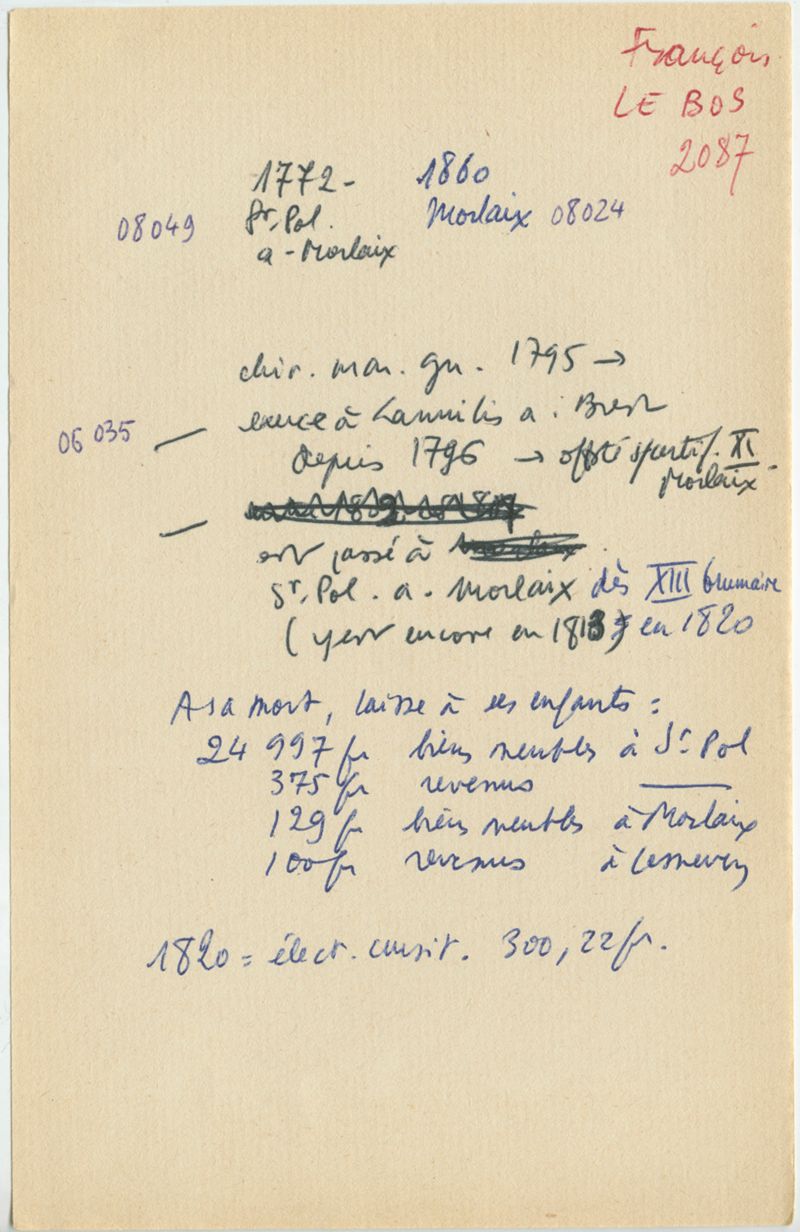 François
LE BOS
2087
1772 - 1860
08049 St. Pol. Morlaix 08024
a - Morlaix
chir. mar. gn. 1795 →
06 035 — exerce à Lannilis a. Brest
depuis 1796 → XI
Morlaix
—
est passé à
St. Pol. a. Morlaix dès XIII brumaire
(y est encore en 1813) en 1820
A sa mort, laisse à ses enfants :
24 997 fr biens meubles à St Pol
375 fr revenus ———
129 fr biens meubles à Morlaix
100 fr revenus à Lesneven
1820 = élect. censit. 300,22 fr.